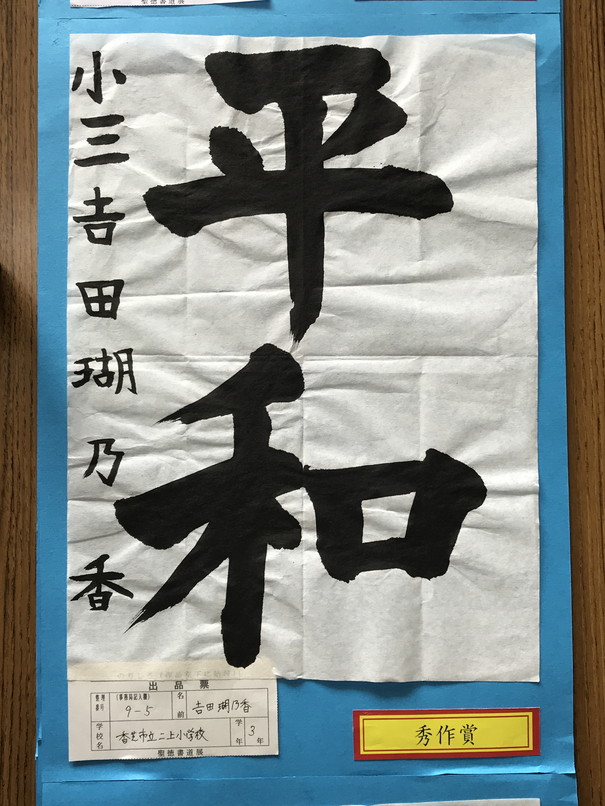 聖徳書道展
平和
小三 𠮷田瑚乃香
出品票
整理番号 (事務局記入欄) 9-5 名前 𠮷田瑚乃香
学校名 香芝市立二上小学校 学年 3年
聖徳書道展
秀作賞